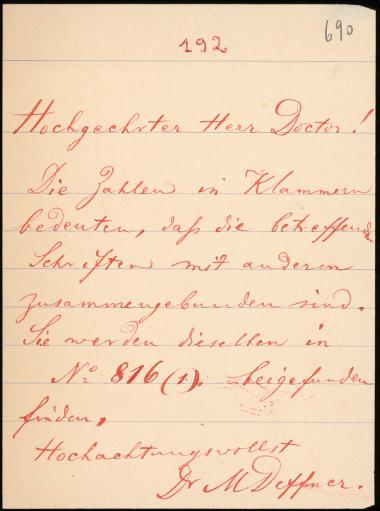 690
192
Hochgeehrter Herr Doctor!
Die Zahlen in Klammern
bedeuten, daß die betreffenden
Schriften mit anderen
zusammengebunden sind.
Sie werden dieselben in
No 816 (1). beigefunden
finden.
Hochachtungsvollst
Dr M Deffner.